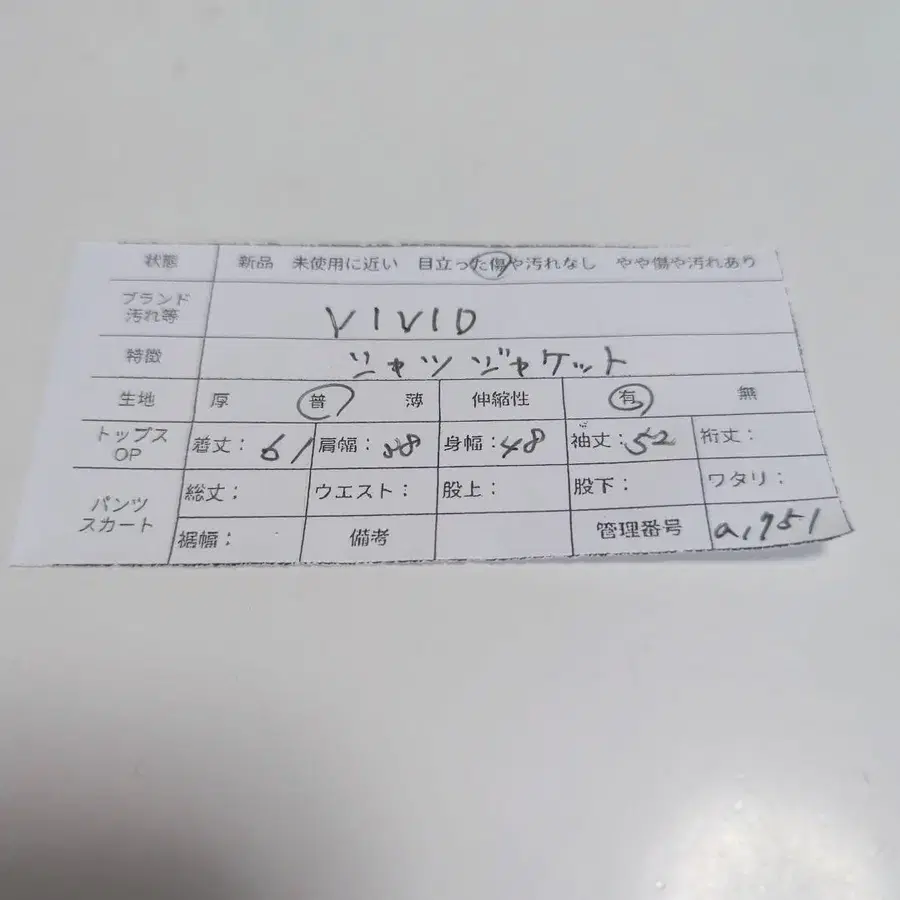 状態 新品 未使用に近い 目立った傷や汚れなし やや傷や汚れあり
ブランド
汚れ等 VIVID
特徴 シャツジャケット
生地 厚 普 薄 伸縮性 有 無
トップス
OP 着丈：61 肩幅：38 身幅：48 袖丈：52 裄丈：
パンツ
スカート 総丈： ウエスト： 股上： 股下： ワタリ：
裾幅： 備考 管理番号 a1751